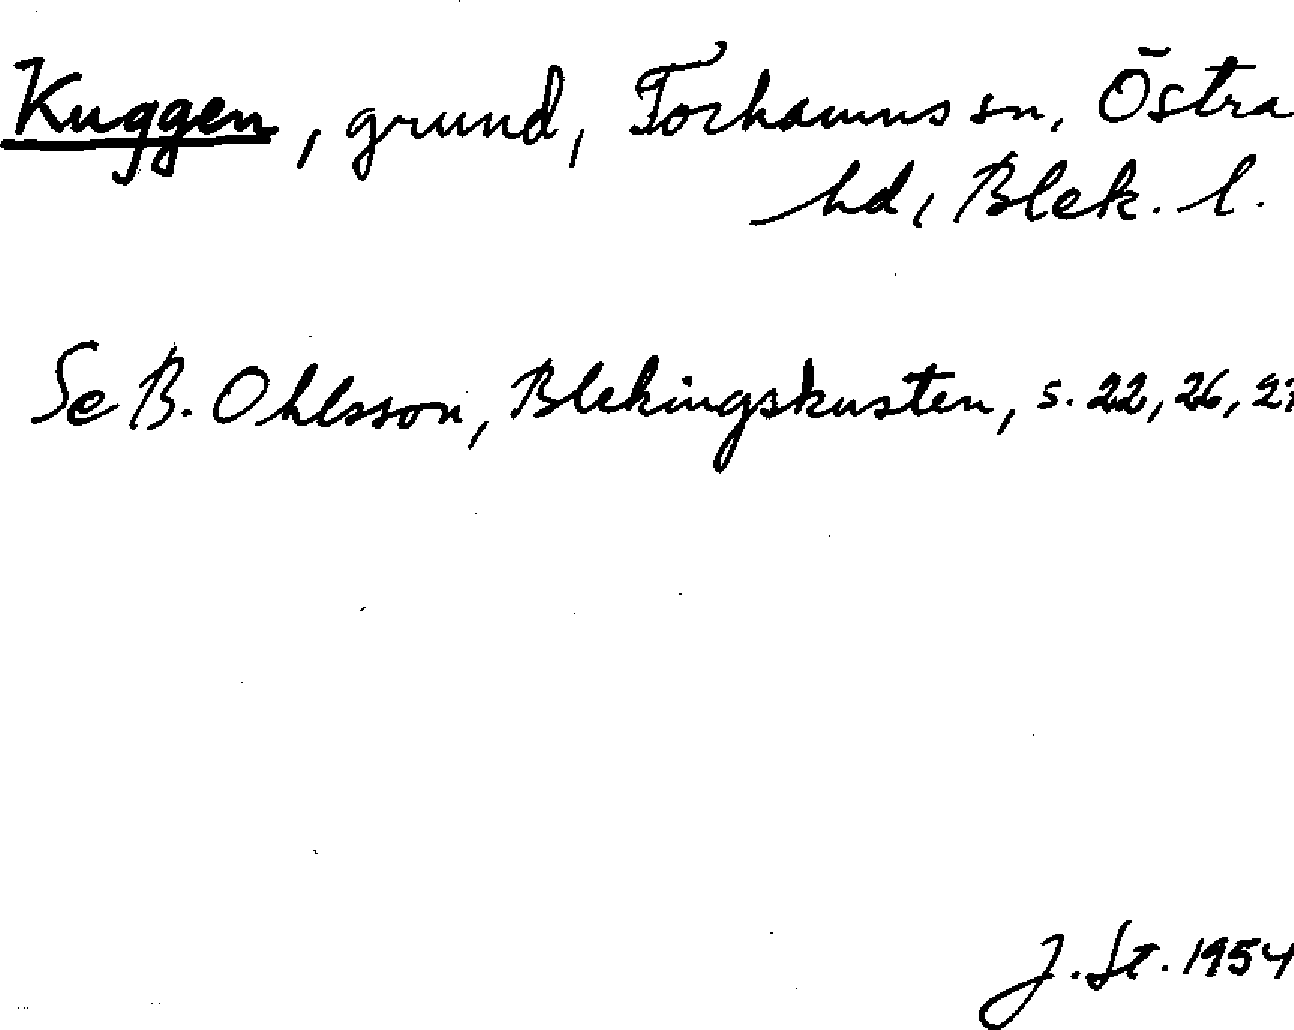 Kuggen, grund, Torhamns sn, Östra
hd, Blek. l.
Se B. Ohlsson, Blekingskusten, s. 22, 26,
J. St. 1954